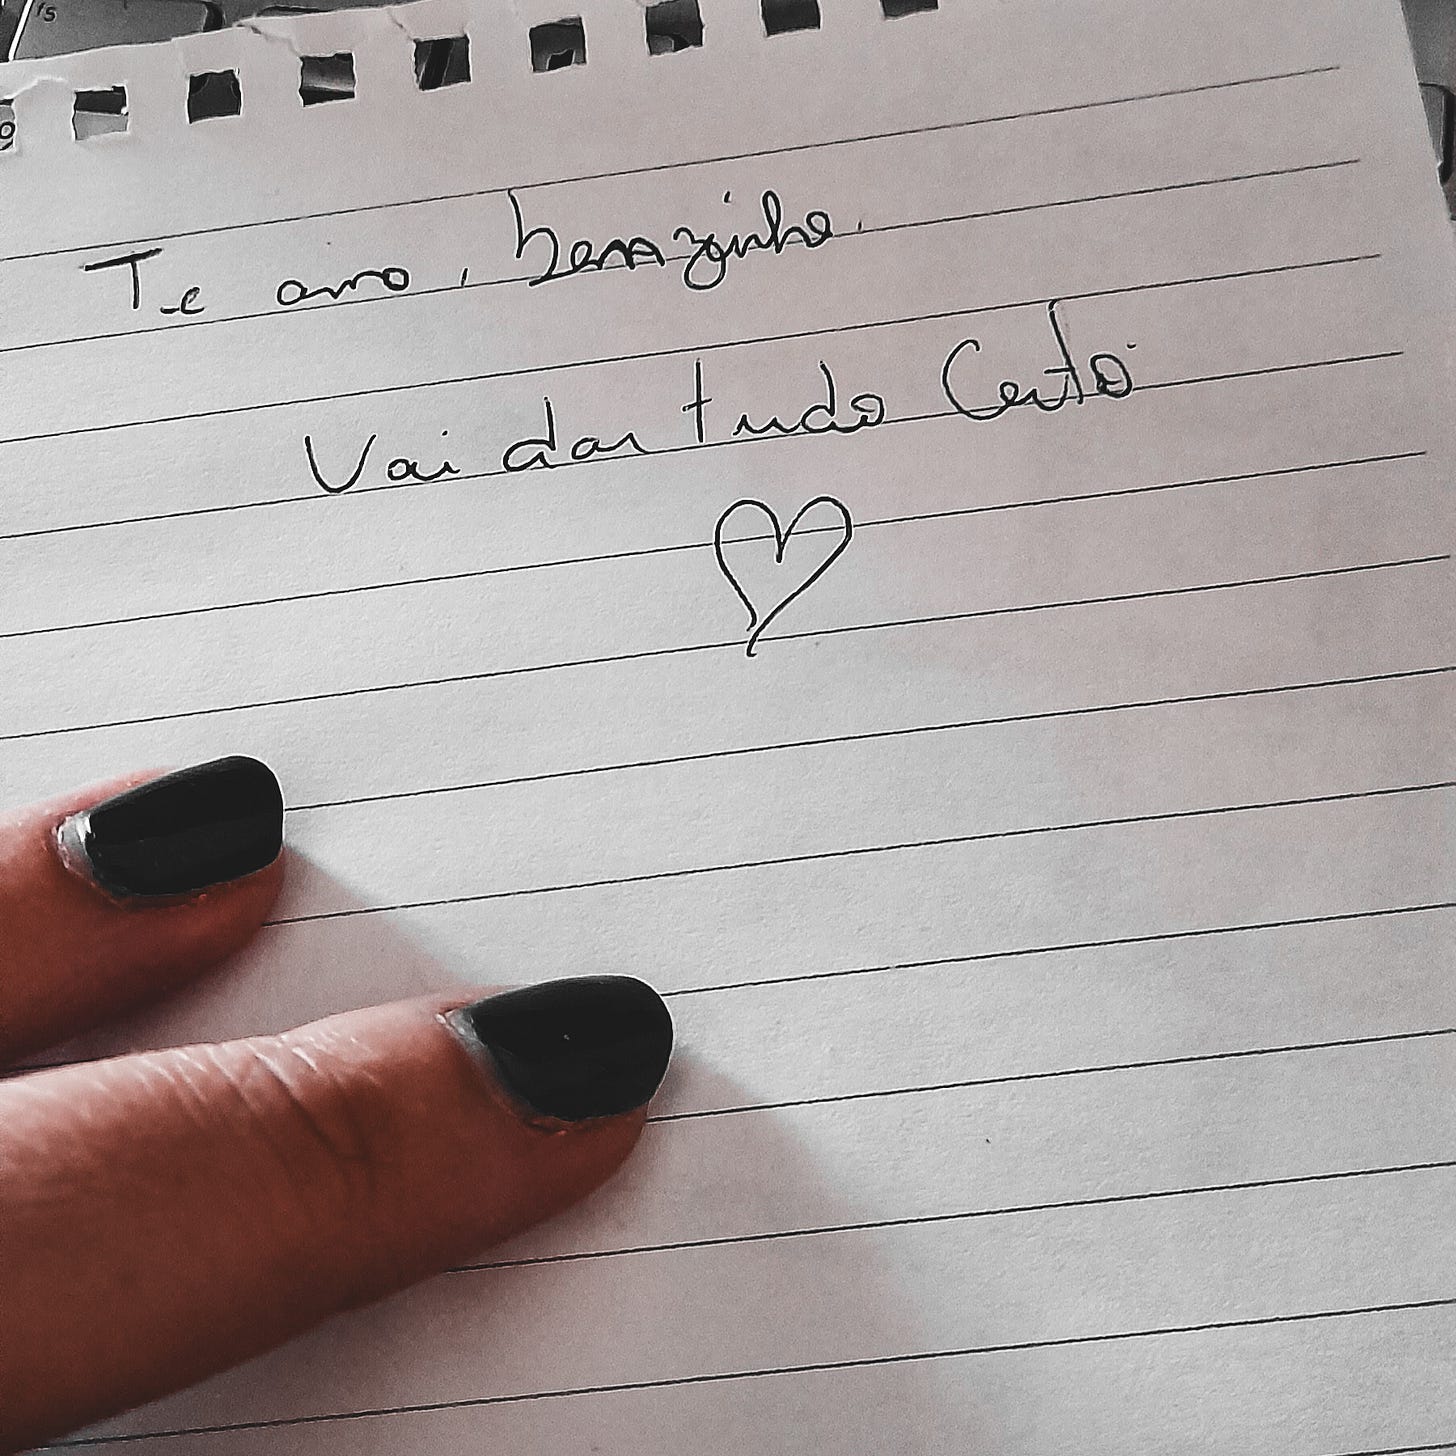 Te amo, bemzinho.
Vai dar tudo certo